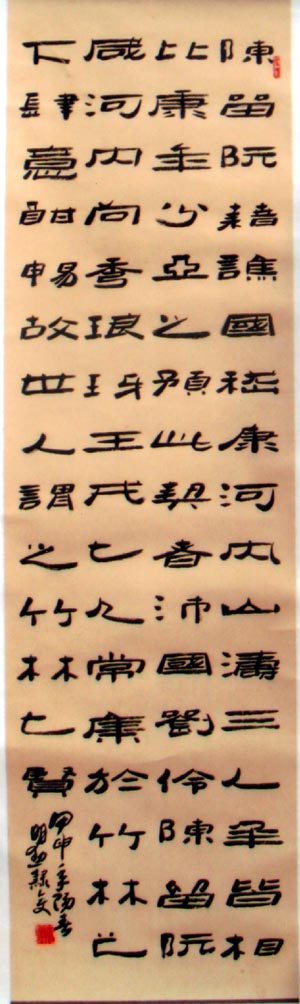 陳留阮籍譙國嵇康河内山濤三人年皆相
比康年少亞之預此契者沛國劉伶陳留阮
咸河内向秀琅玡王戎七人常集於竹林之
下肆意酣暢故世人謂之竹林七賢
甲申年陽春